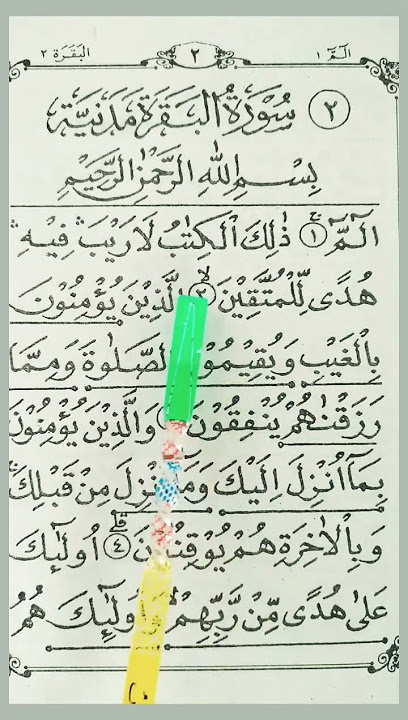 الٓمّٓ ١ ٢ البَقَرَة ٢
٢ سُوْرَةُ الْبَقَرَةِ مَدَنِيَّةٌ
بِسْمِ اللّٰهِ الرَّحْمٰنِ الرَّحِيْمِ
الٓمّٓ ۚ ١ ذٰلِكَ الْكِتٰبُ لَا رَيْبَ ۛ فِيْهِ ۛ
هُدًى لِّلْمُتَّقِيْنَ ۙ ٢ الَّذِيْنَ يُؤْمِنُوْنَ
بِالْغَيْبِ وَيُقِيْمُوْنَ الصَّلٰوةَ وَمِمَّا
رَزَقْنٰهُمْ يُنْفِقُوْنَ وَالَّذِيْنَ يُؤْمِنُوْنَ
بِمَآ اُنْزِلَ اِلَيْكَ وَمَآ اُنْزِلَ مِنْ قَبْلِكَ ۚ
وَبِالْاٰخِرَةِ هُمْ يُوْقِنُوْنَ ۗ ٤ اُولٰٓئِكَ
عَلٰى هُدًى مِّنْ رَّبِّهِمْ وَاُولٰٓئِكَ هُمُ